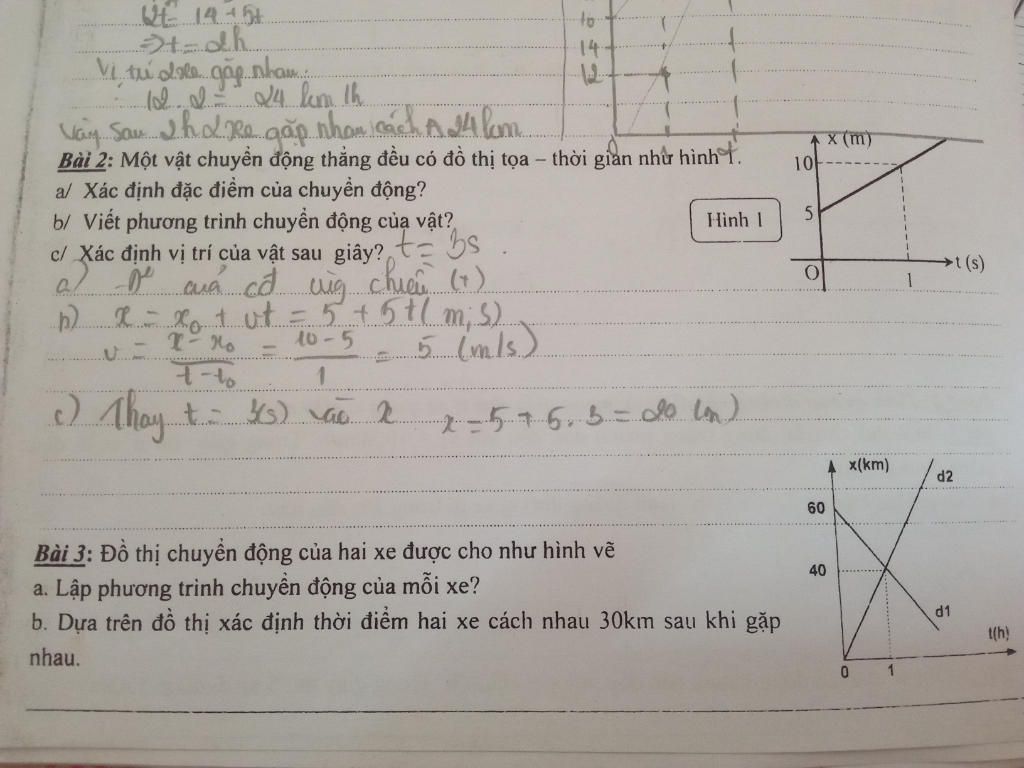 12t = 14 + 5t
=> t = 2h
Vị trí 2 xe gặp nhau:
12 . 2 = 24 km/h
Vậy sau 2h 2 xe gặp nhau cách A 24 km
16
14
12
0 1
Bài 2: Một vật chuyển động thẳng đều có đồ thị tọa – thời gian như hình 1.
a/ Xác định đặc điểm của chuyển động?
b/ Viết phương trình chuyển động của vật?
c/ Xác định vị trí của vật sau giây? t = 3s
x (m)
10
5
O
1
t (s)
Hình 1
a) của cđ cùng chiều (+)
b) x = x0 + vt = 5 + 5t ( m; s)
v = x - x0 / t - t0 = 10 - 5 / 1 = 5 (m/s)
c) Thay t = 3(s) vào x x = 5 + 5. 3 = 20 (m)
Bài 3: Đồ thị chuyển động của hai xe được cho như hình vẽ
a. Lập phương trinh chuyển động của mỗi xe?
b. Dựa trên đồ thị xác định thời điểm hai xe cách nhau 30km sau khi gặp
nhau.
x(km)
d2
60
40
d1
t(h)
0 1